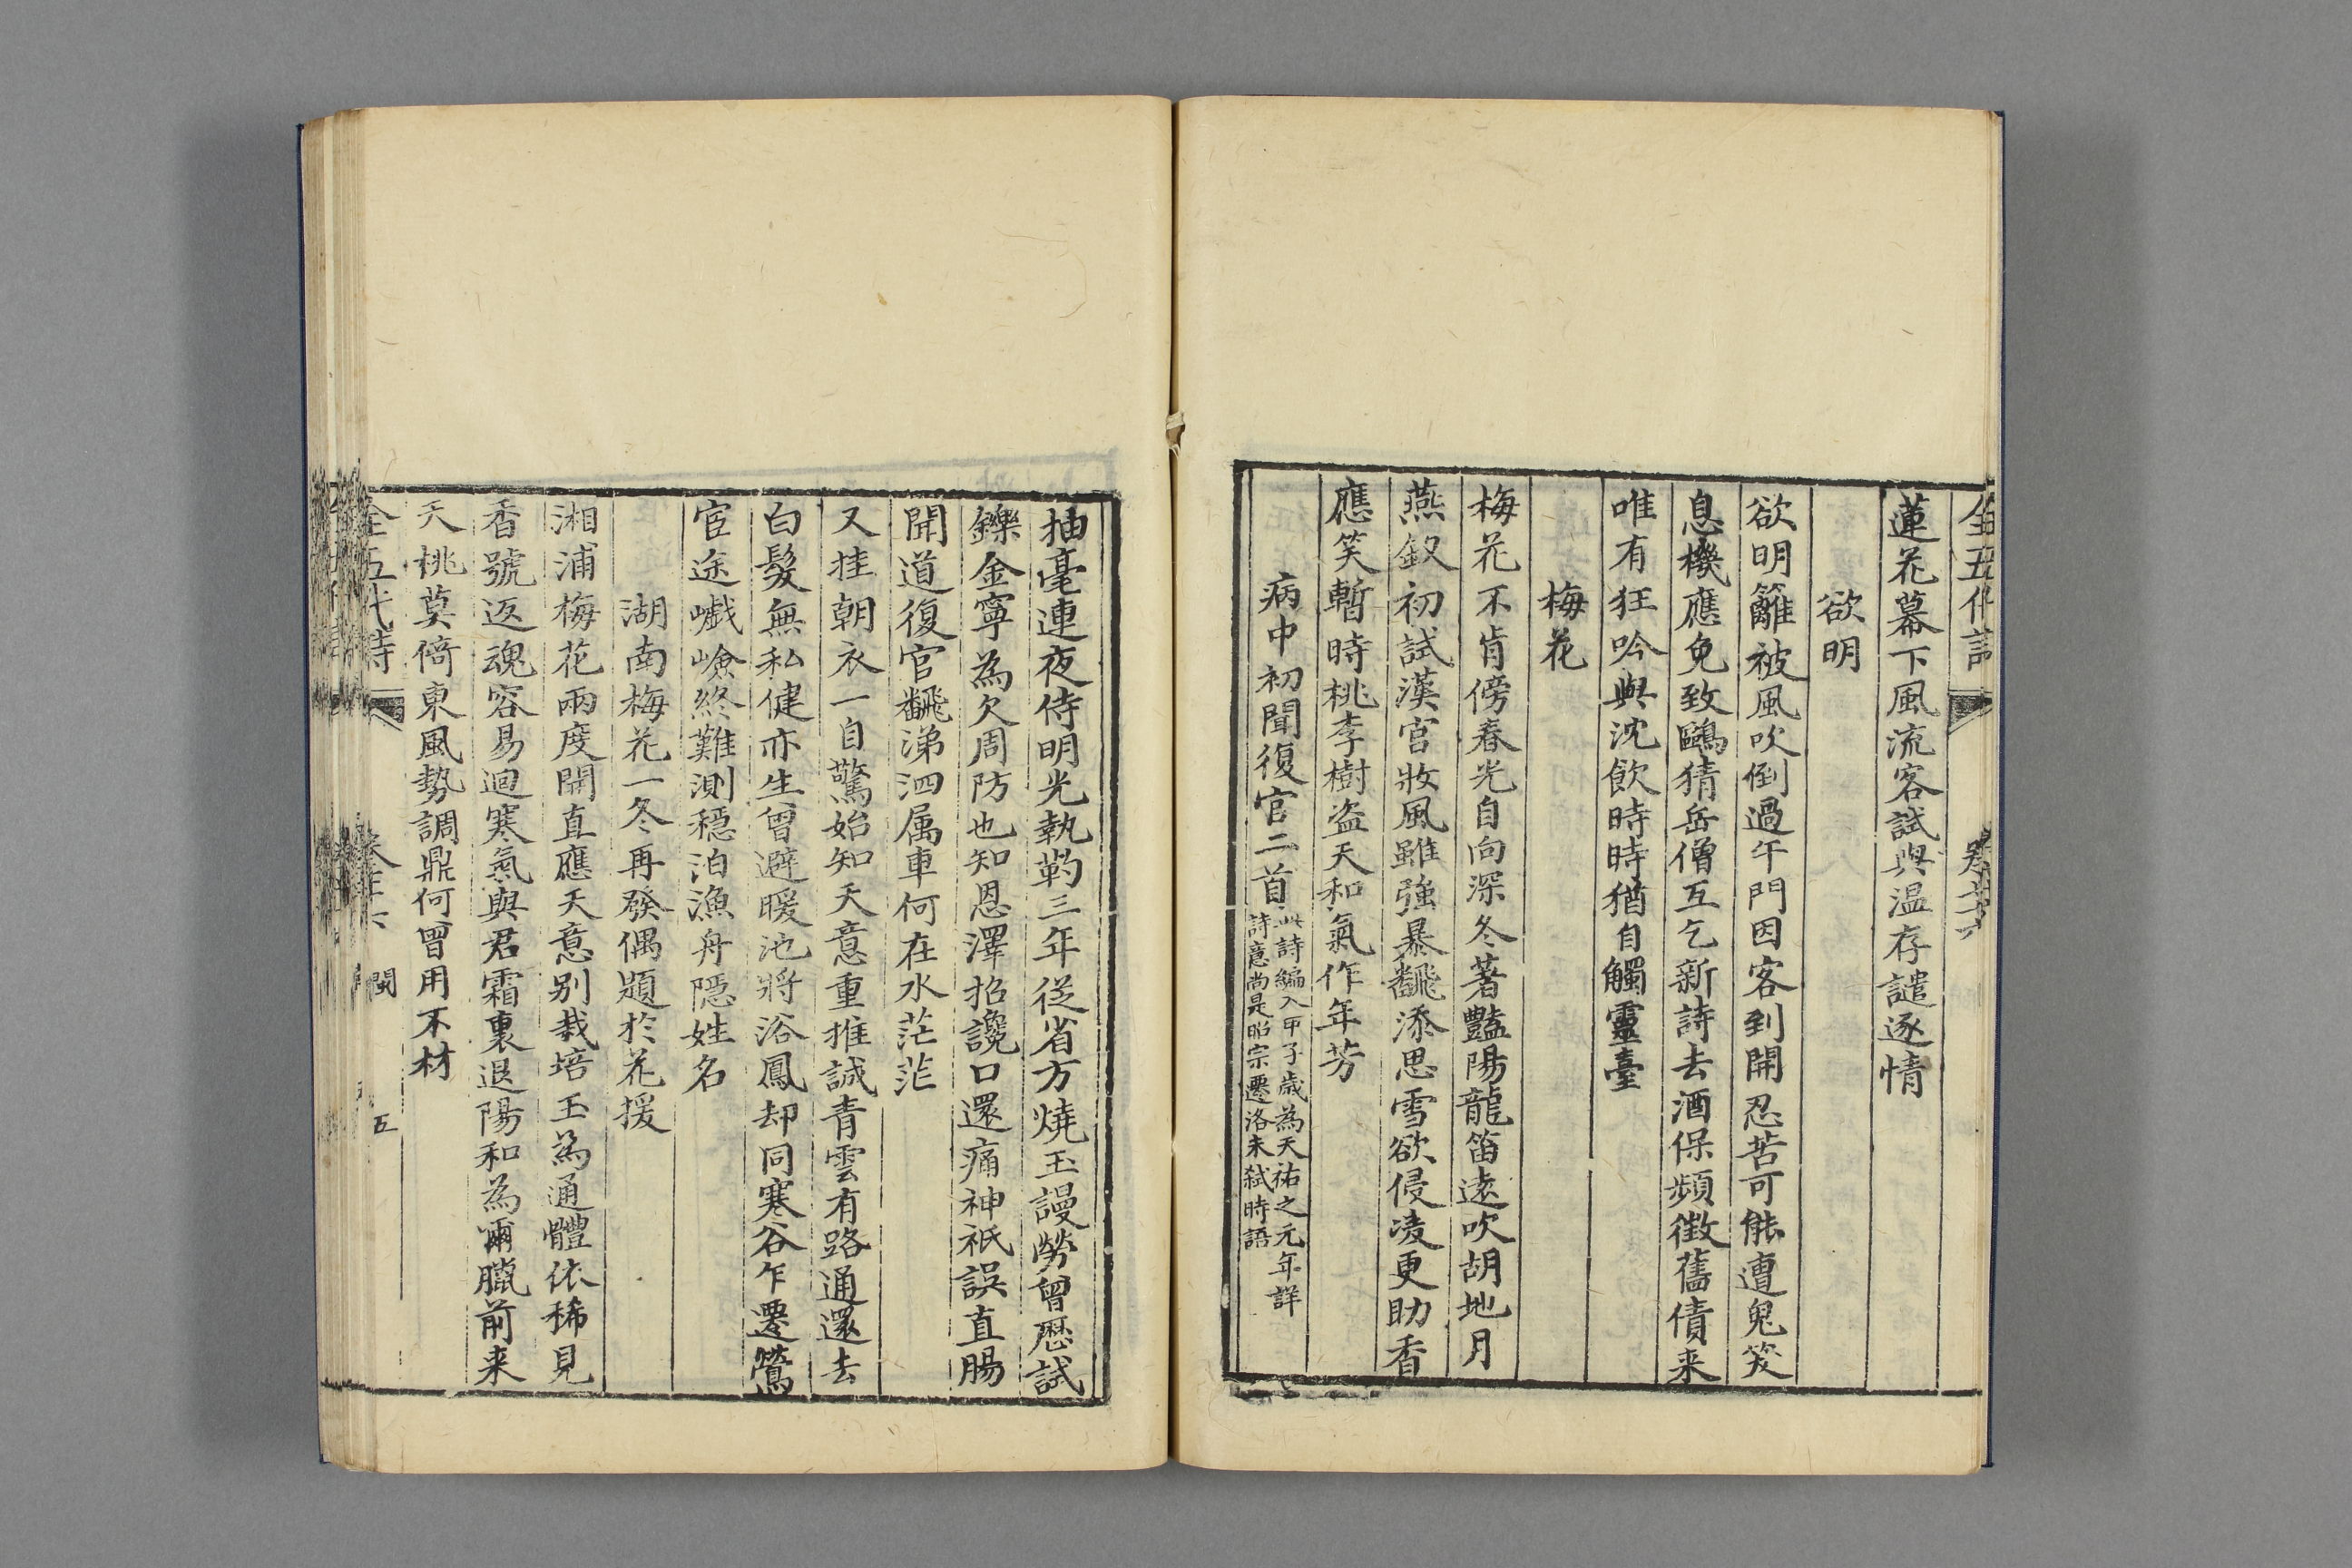 全五代詩
蓮花幕下風流客試與温存譴逐情
欲明
欲明籬被風吹倒過午門因客到開忍苦可能遭鬼笑
息機應免致鷗猜岳僧互乞新詩去酒保頻徴舊債来
唯有狂吟與沈飲時時猶自觸靈臺
梅花
梅花不肯傍春光自向深冬著豔陽龍笛遠吹胡地月
燕釵初試漢宮妝風雖強暴飜添思雪欲侵凌更助香
應笑暫時桃李樹盗天和氣作年芳
病中初聞復官二首
此詩編入甲子歲為天祐之元年詳
詩意尚是昭宗遷洛未弑時語
抽毫連夜侍明光執靮三年從省方燒玉謾勞曾歴試
鑠金寧為欠周防也知恩澤招讒口還痛神祇誤直腸
聞道復官飜涕泗属車何在水茫茫
又挂朝衣一自驚始知天意重推誠青雲有路通還去
白髮無私健亦生曾避暖池將浴鳳却同寒谷乍遷鶯
宦途巇嶮終難測穩泊漁舟隱姓名
湖南梅花一冬再發偶題於花援
湘浦梅花兩度開直應天意别栽培玉為通體依稀見
香號返魂容易迴寒氣與君霜裏退陽和為爾臘前来
夭桃莫倚東風勢調鼎何曾用不材
全五代詩
閩
五